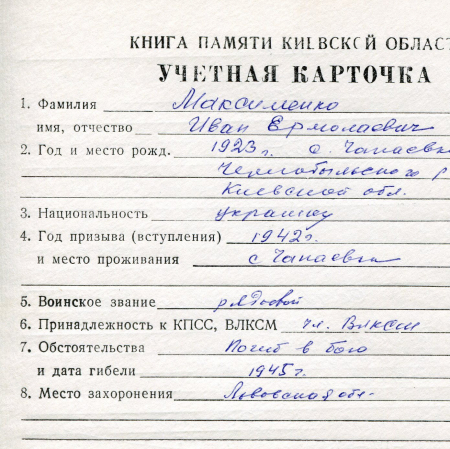 КНИГА ПАМЯТИ КИЕВСКОЙ ОБЛАСТ
УЧЕТНАЯ КАРТОЧКА
1. Фамилия Максименко
имя, отчество Иван Ермолаевич
2. Год и место рожд. 1923г. с. Чапаевка
Чернобыльского р
Киевской обл.
3. Национальность украинец
4. Год призыва (вступления) 1942г.
и место проживания с Чапаевка
5. Воинское звание рядовой
6. Принадлежность к КПСС, ВЛКСМ чл. Влксм
7. Обстоятельства Погиб в бою
и дата гибели 1945г.
8. Место захоронения Львовская обл.